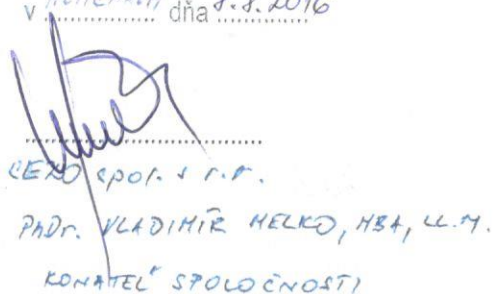 v ............ dňa 8.8.2016
spol. s r.r.
PhDr. VLADIMÍR MELKO, MBA, LL.M.
KONATEĽ SPOLOČNOSTI